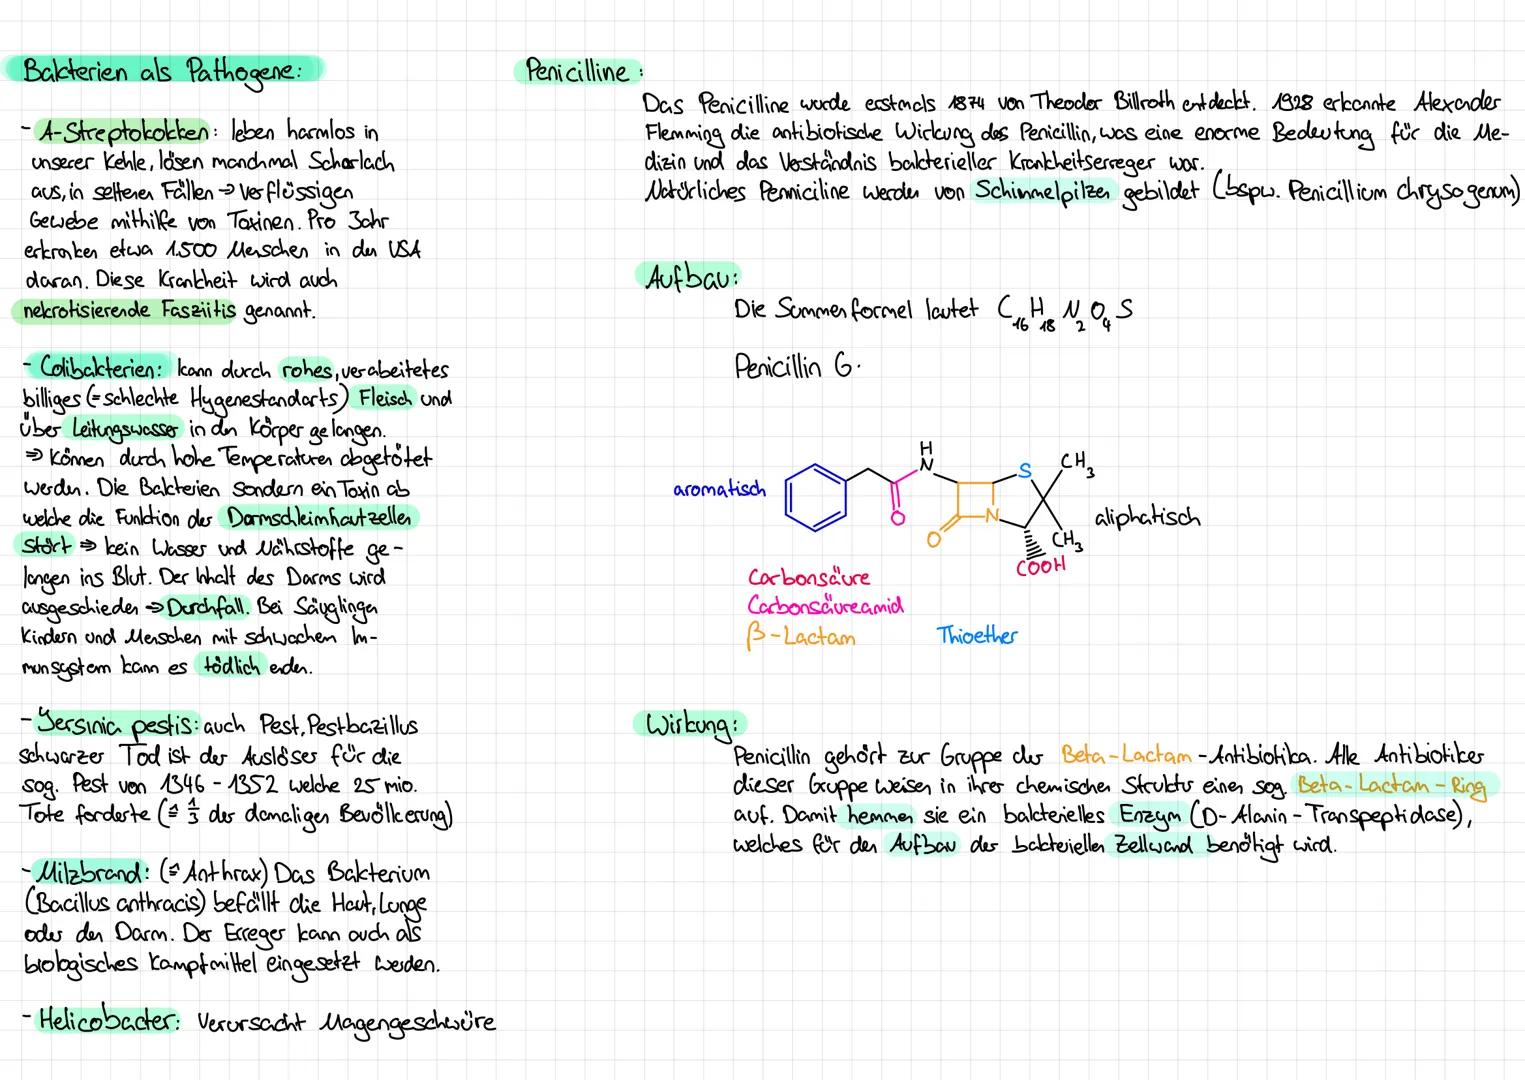 Bakterien als Pathogene:
- A-Streptokokken: leben harmlos in
unserer Kehle, lösen manchmal Scharlach
aus, in seltenen Fällen → verflüssigen
Gewebe mithilfe von Toxinen. Pro Jahr
erkranken etwa 1.500 Menschen in den USA
daran. Diese Krankheit wird auch
nekrotisierende Fasziitis genannt.
- Colibakterien: kann durch rohes, verabeitetes
billiges (= schlechte Hygenestandarts) Fleisch und
über Leitungswasser in den Körper gelangen.
⇒ Können durch hohe Temperaturen abgetötet
werden. Die Bakterien sondern ein Toxin ab
welche die Funktion der Darmschleimhautzellen
stört ⇒ kein Wasser und Nährstoffe ge-
langen ins Blut. Der Inhalt des Darms wird
ausgeschieden ⇒ Durchfall. Bei Säuglingen
Kindern und Menschen mit schwachem Im-
munsystem kann es tödlich enden.
- Yersinia pestis: auch Pest, Pestbazillus
schwarzer Tod ist der Auslöser für die
sog. Pest von 1346 - 1352 welche 25 mio.
Tote forderte (≙ 1/3 der damaligen Bevölkerung)
- Milzbrand: (≙ Anthrax) Das Bakterium
(Bacillus anthracis) befällt die Haut, Lunge
oder den Darm. Der Erreger kann auch als
biologisches Kampfmittel eingesetzt werden.
- Helicobacter: Verursacht Magengeschwüre
Penicilline:
Das Penicilline wurde erstmals 1874 von Theodor Billroth entdeckt. 1928 erkannte Alexander
Flemming die antibiotische Wirkung des Penicillin, was eine enorme Bedeutung für die Me-
dizin und das Verständnis bakterieller Krankheitserreger war.
Natürliches Penniciline werden von Schimmelpilzen gebildet (bspw. Penicillium chrysogenum)
Aufbau:
Die Summenformel lautet C₁₆H₁₈N₂O₄S
Penicillin G.
H
N
S
CH₃
aromatisch
O
N
aliphatisch
O
CH₃
COOH
Carbonsäure
Carbonsäureamid
β-Lactam
Thioether
Wirkung:
Penicillin gehört zur Gruppe der Beta-Lactam-Antibiotika. Alle Antibiotiker
dieser Gruppe weisen in ihrer chemischen Struktur einen sog. Beta-Lactam-Ring
auf. Damit hemmen sie ein bakterielles Enzym (D-Alanin-Transpeptidase),
welches für den Aufbau der bakteriellen Zellwand benötigt wird.